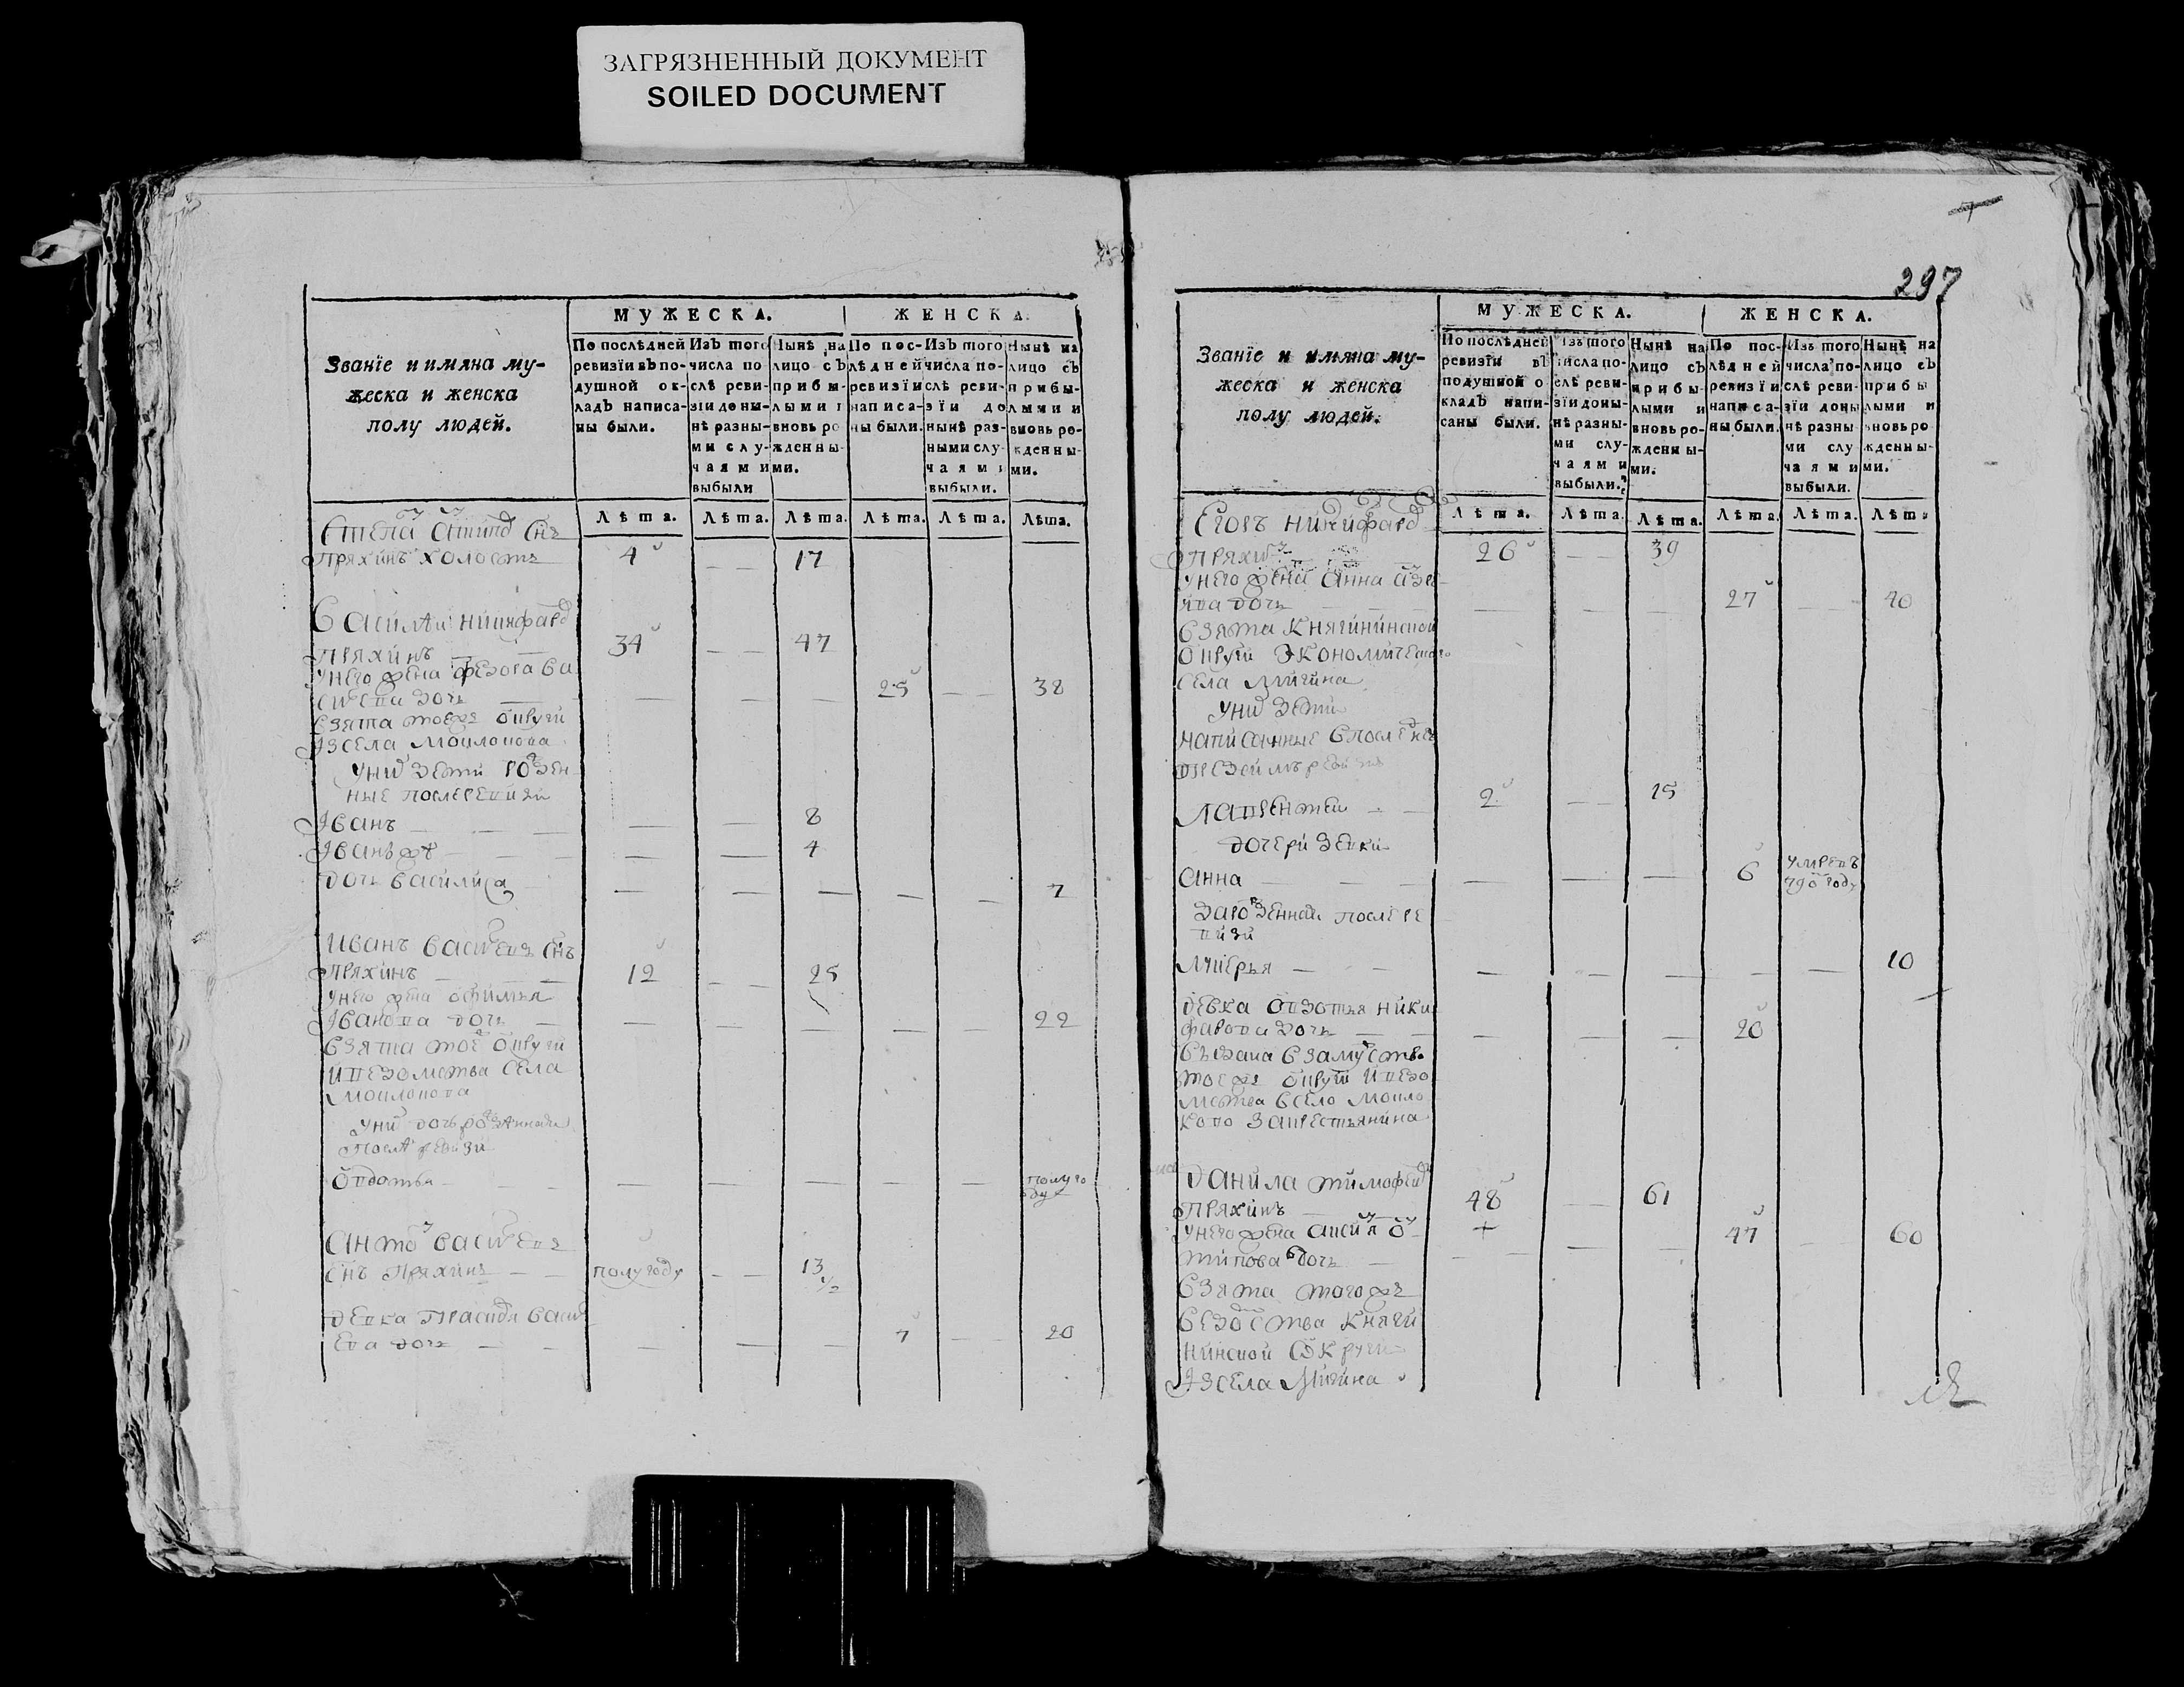 ЗАГРЯЗНЕННЫЙ ДОКУМЕНТ
SOILED DOCUMENT
МУЖЕСКА. ЖЕНСКА.
Званїе и имяна му-
жеска и женска
полу людей.
По послѣдней
ревизїи въ по-
душной ок-
ладъ написа-
ны были.
Изъ того
числа по
слѣ реви-
зїи доны-
нѣ разны-
ми слу-
чаями
выбыли
Нынѣ на
лицо съ
прибы-
лыми и
вновь ро
жденны-
ми.
По пос-
лѣдней
ревизїи
написа-
ны были.
Изъ того
числа по-
слѣ реви-
зїи до
нынѣ раз-
ными слу-
чаями
выбыли.
Нынѣ на
лицо съ
прибы-
лыми и
вновь ро-
жденны-
ми.
Лѣта. Лѣта. Лѣта. Лѣта. Лѣта. Лѣта.
снъ
Пряхинъ холостъ 4 17
Василѣи
Пряхинъ 34 47
унего жена Ѳедора Ва
дочь 25 38
взята тоеже округи
Ізсела Моклокова
уних дети рожден
ные после ревизи
Іванъ 8
Іванъ же 4
дочь Василиса 7
Иванъ Васильевъ снъ
Пряхинъ 12 25
унего жена Офимья
Іванова дочь 22
взята тоеж округи
иведомства села
Моклокова
уних дочь рожденная
послѣ ревизи
Овдотья полуго
ду
Антон Васильевъ
снъ Пряхинъ полугоду 13 1/2
девка Прасковя Васил
ева дочь 7 20
297
МУЖЕСКА. ЖЕНСКА.
Званїе и имяна му-
жеска и женска
полу людей.
По послѣдней
ревизїи въ
подушной о
кладъ напи-
саны были.
Изъ того
числа по-
слѣ реви-
зїи доны-
нѣ разны-
ми слу-
чаями
выбыли.
Нынѣ на
лицо съ
прибы-
лыми и
вновь ро-
жденны-
ми.
По пос-
лѣдней
ревизїи
написа-
ны были.
Изъ того
числа по-
слѣ реви-
зїи доны
нѣ разны-
ми слу
чаями
выбыли.
Нынѣ на
лицо съ
прибы
лыми и
вновь ро
жденны-
ми.
Лѣта. Лѣта. Лѣта. Лѣта. Лѣта. Лѣта
Егоръ Никифоров
Пряхин 26 39
унего жена Анна
дочь 27 40
взята Княгининской
округи Экономическаго
села Мигина
уних дети
написанные впоследней
пред сим ревизи
Лаврентеи 2 15
дочери девки
Анна 6 умре въ
790 году
зарожденная после ре
визи
Лукерья 10
девка Овдотья Ники
форова дочь 20
въдана взамужство
тоеже округи иведо
мства всело Мокло
ково закрестьянина
Данила Тимофеев
Пряхинъ 48 61
унего жена 47 60
дочь
взята тогоже
ведомства Княги
нинской округи
Ізсела Мигина